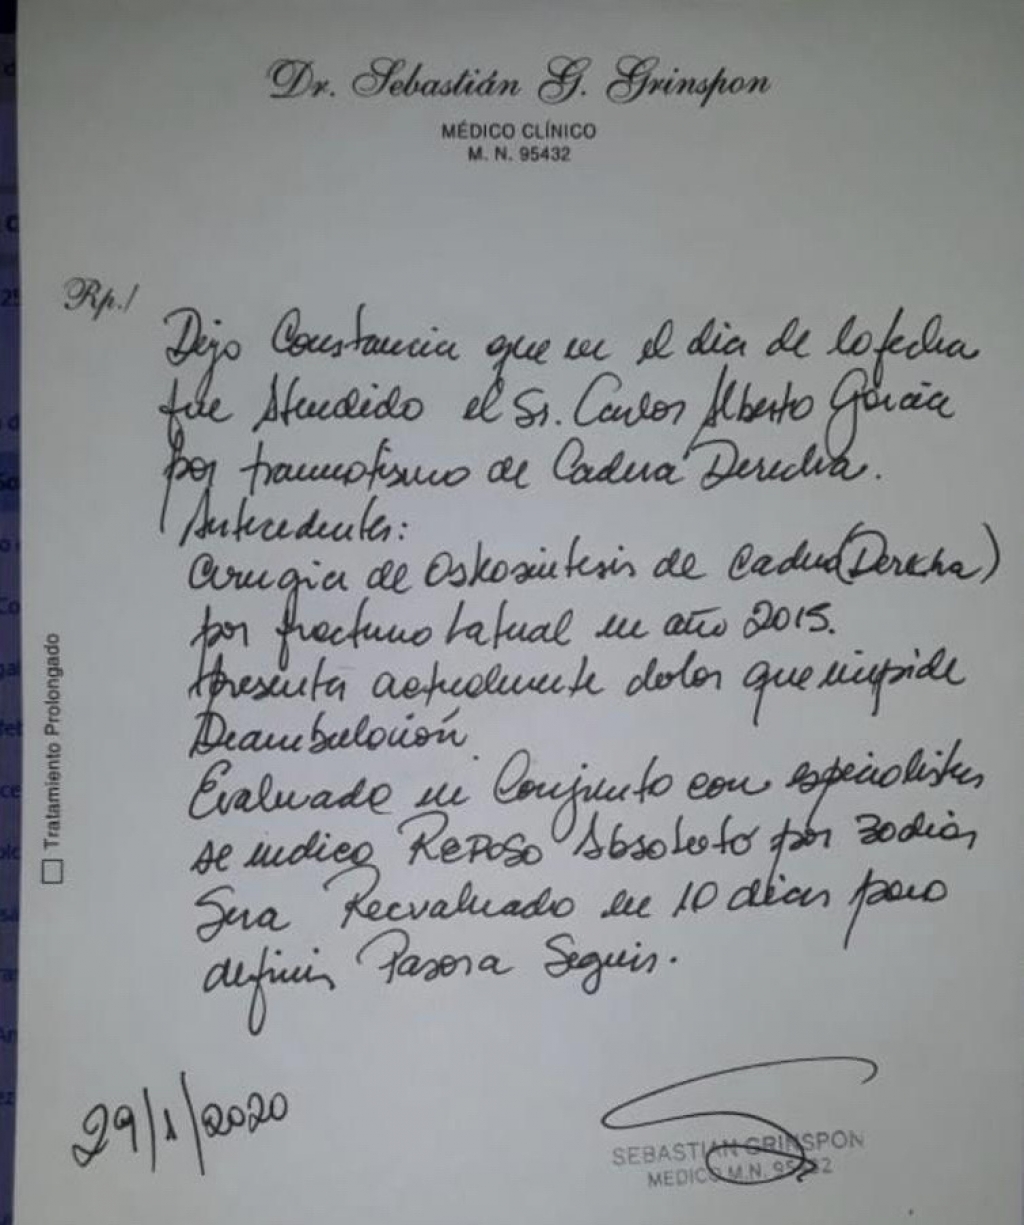 Dr. Sebastián G. Grinspon
MÉDICO CLÍNICO
M. N. 95432
Rp./
Dejo Constancia que en el dia de la fecha
fue Atendido el Sr. Carlos Alberto García
por traumatismo de Cadera Derecha.
Antecedentes:
Cirugia de Osteosintesis de Cadera (Derecha)
por fractura lateral en año 2015.
Presenta actualmente dolor que impide
Deambulación
Evaluado en Conjunto con especialistas
se indica Reposo Absoluto por 30 dias
Sera Reevaluado en 10 dias para
definir Pasos a Seguir.
Tratamiento Prolongado
29/1/2020
SEBASTIAN GRINSPON
MEDICO M.N. 95432